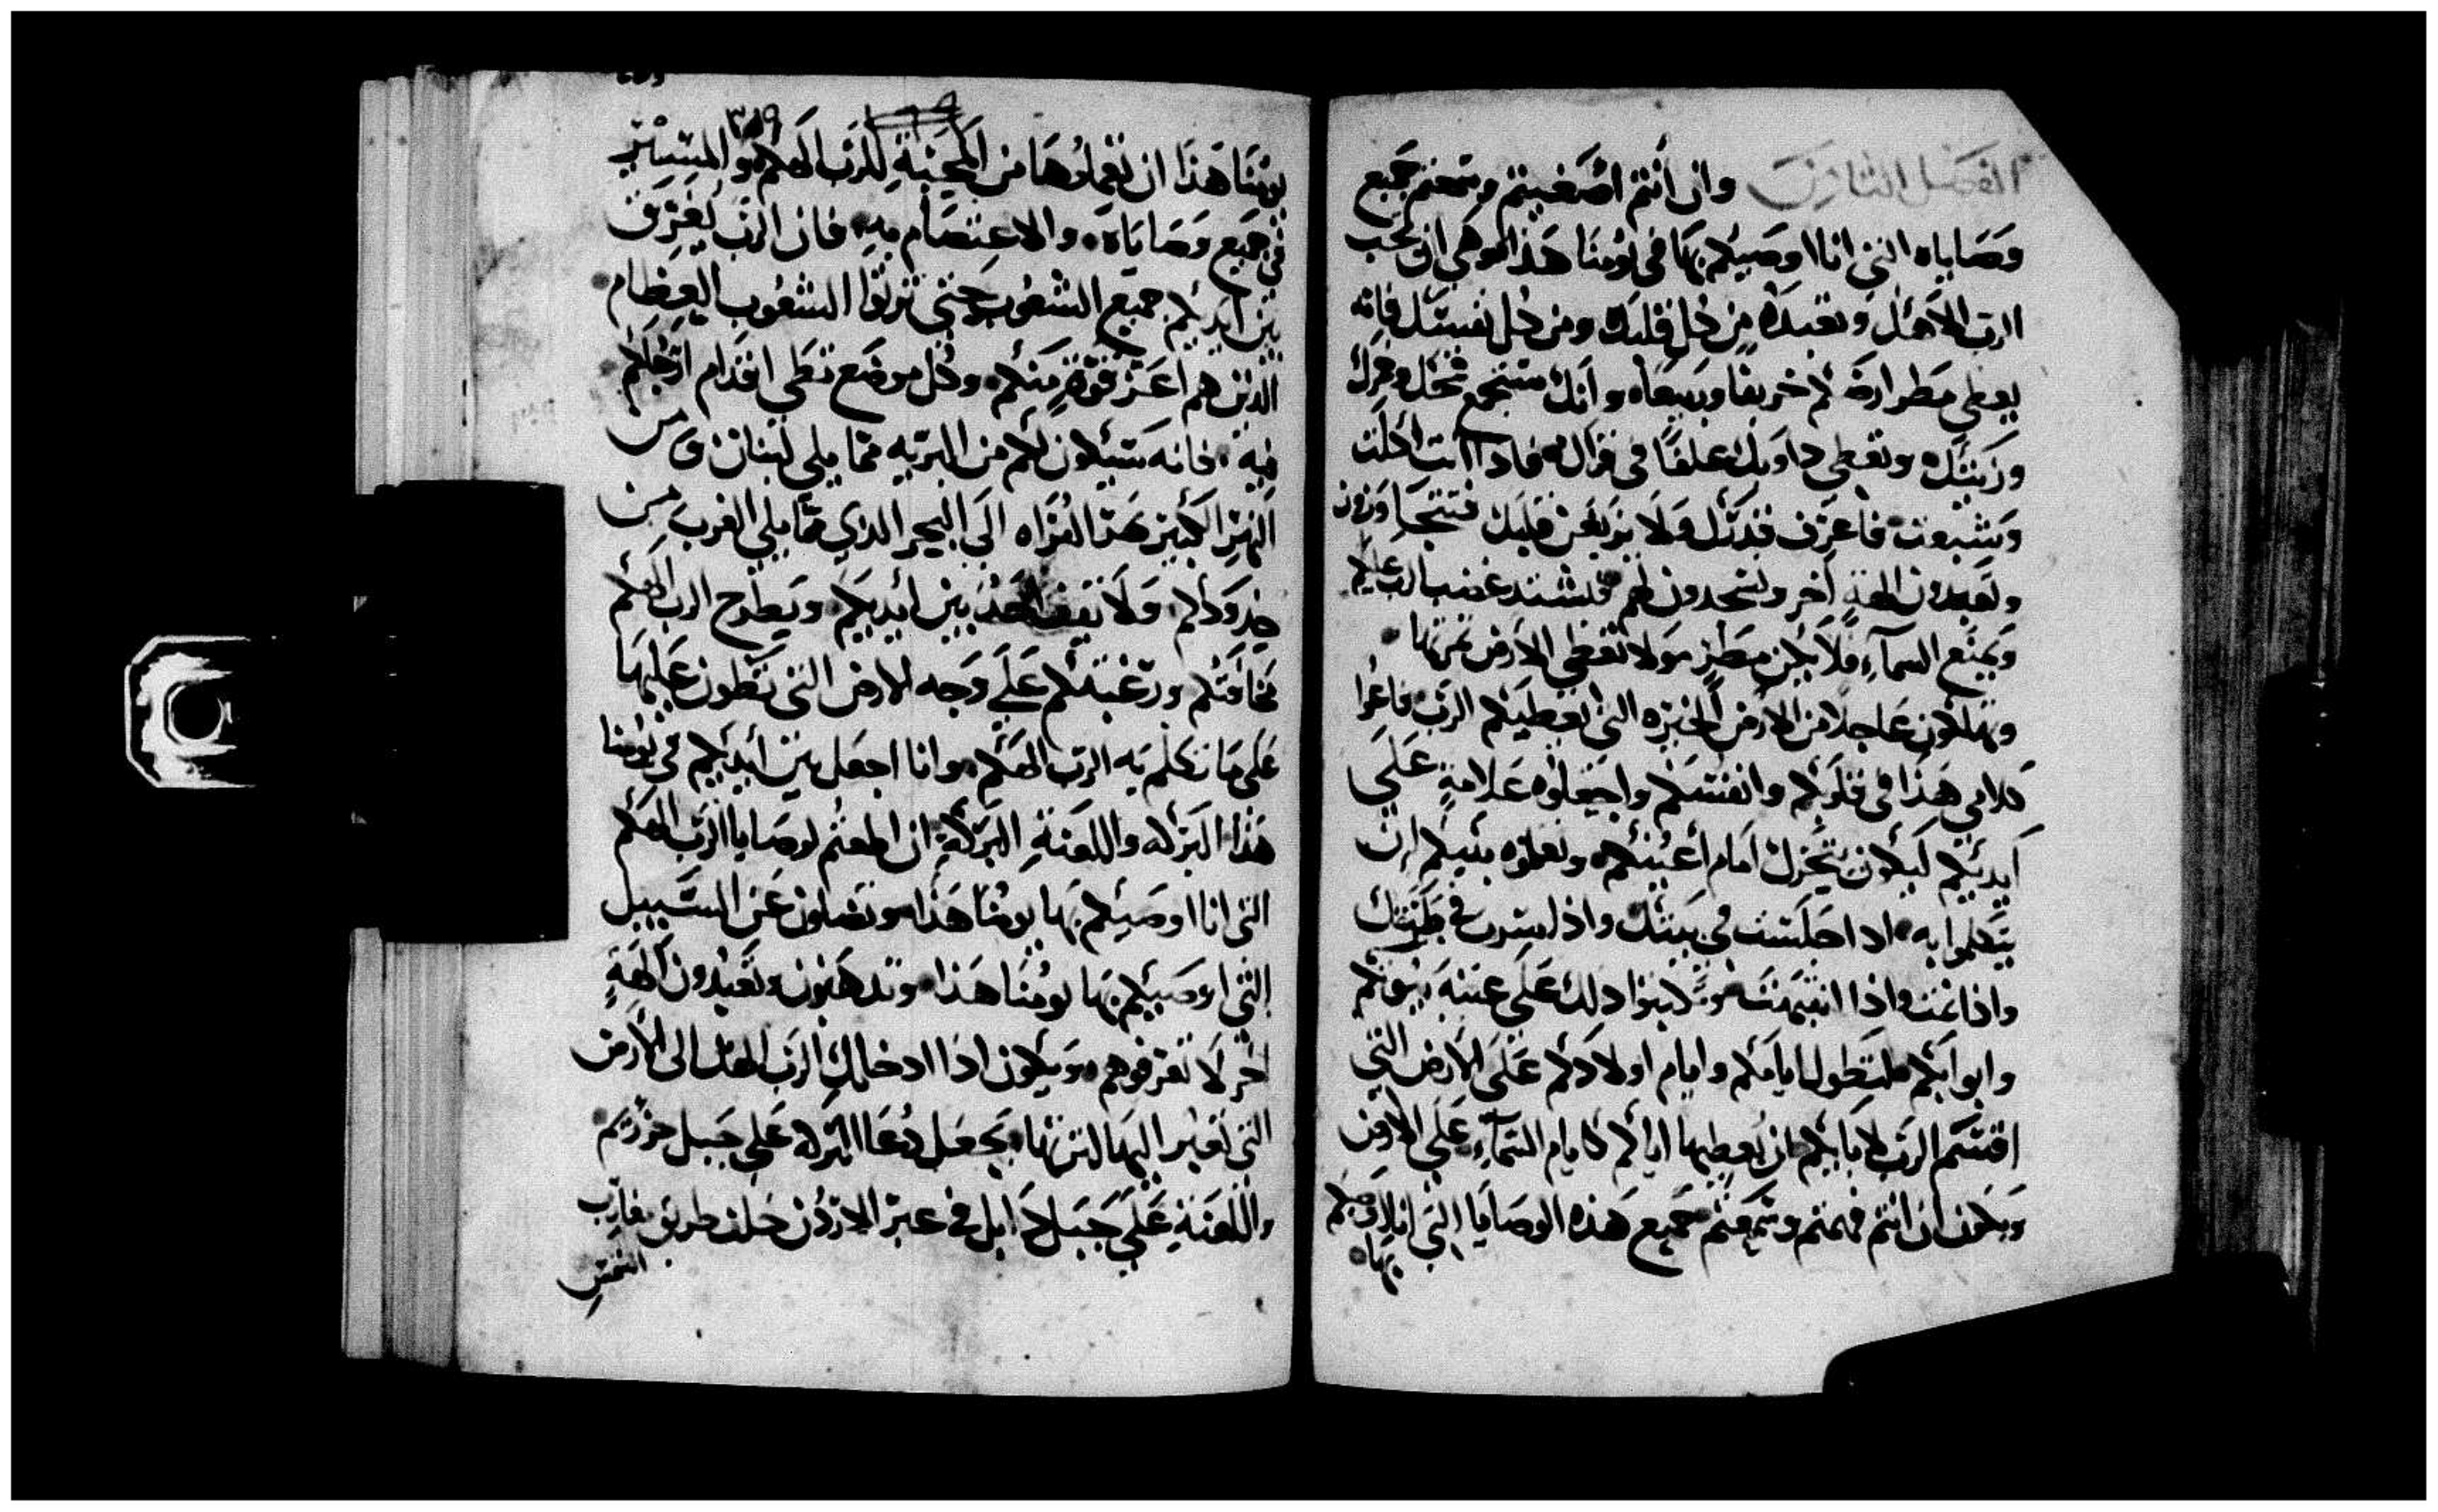 الفصل الثامن وان أنتم اصغيتم وسمعتم جميع
وصاياه التي انا اوصيكم بها في يومنا هذا وهي ان تحب
الرب الاهك وتعبده من كل قلبك ومن كل نفسك فانه
يعطي مطر ارضكم خريفا وربيعا وانك ستجمع غلك وخمرك
وزيتك وتعطي دوابك علفا في قراك فاذا انت اكلت
وشبعت فاعرف قدرك ولا يزيغن قلبك فتنتحا وزون
وتعبدون الهة اخر وتسجدون لهم فيشتد غضب الرب عليكم
ويمنع السماء فلا يكن مطر ولا تعطي الارض ثمرتها
وتهلكون عاجلا من الارض الخيره التي يعطيكم الرب فاعوا
كلامي هذا في قلوبكم وانفسكم واجعلوه علامة علي
أيديكم ليكون يتحرك امام أعينكم وتعلموه بنيكم ان
يتكلموا به اذا جلست في بيتك واذا سرت في طريقك
واذا نمت واذا انتبهت وتكتبوا ذلك على عتبة بيوتكم
وابوابكم لتطول ايامكم وايام اولادكم على الارض التي
اقسم الرب لابايكم ان يعطيها اياكم كايام السماء على الارض
ويكون ان انتم فهمتم وسمعتم جميع هذه الوصايا التي انا اوصيكم
بها
٣٥٩
يومنا هذا ان تعملوها من المحبة للرب الهكم والمسير
في جميع وصاياه والاعتصام به فان الرب يفرق
بين أيديكم جميع الشعوب حتي ترثوا الشعوب العظام
الذين هم اعز قوة منكم وكل موضع تطي اقدام ارجلكم
فيه فانه سيكون لكم من البريه مما يلي لبنان ومن
النهر الكبير نهر الفراه الى البحر الذي مما يلي الغرب من
حدودكم ولا يقف احد بين أيديكم ويطرح الرب الهكم
مخافتكم ورعبتكم على وجه الارض التي تطون عليها
على ما تكلم به الرب الهكم وانا اجعل بين أيديكم في يومنا
هذا البركه واللعنة البركة ان اطعتم لوصايا الرب الهكم
التي انا اوصيكم بها يومنا هذا وتضلون عن السبيل
التي اوصيكم بها يومنا هذا وتذهبون وتعبدون الهة
اخر لا تعرفوهم ويكون اذا ادخلك الرب الهك الى الارض
التي تعبر اليها لترثها تجعل دعا البركه على جبل حرزيم
واللعنة علي جبل دابل في عبر الاردن خلف طريق مغارب
الشمس